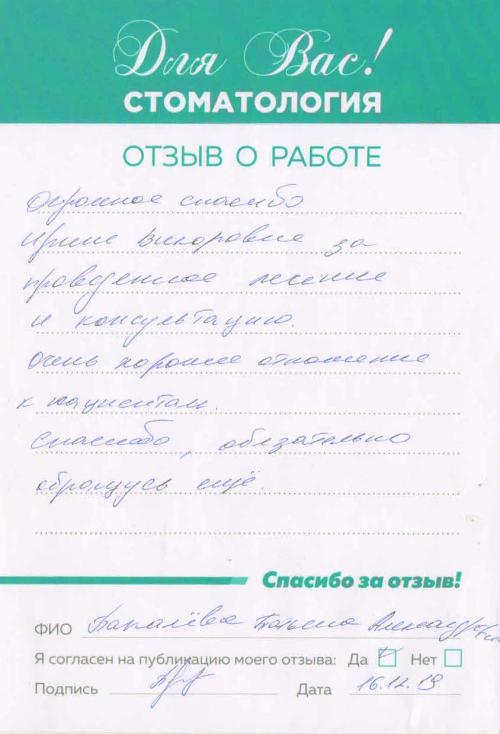 Для Вас!
СТОМАТОЛОГИЯ
ОТЗЫВ О РАБОТЕ
Огромное спасибо
Ирине Викторовне за
проведенное лечение
и консультацию.
Очень хорошее отношение
к пациентам.
Спасибо, обязательно
обращусь ещё.
Спасибо за отзыв!
ФИО Татьяна
Я согласен на публикацию моего отзыва: Да Нет
Подпись Дата 16.12.19